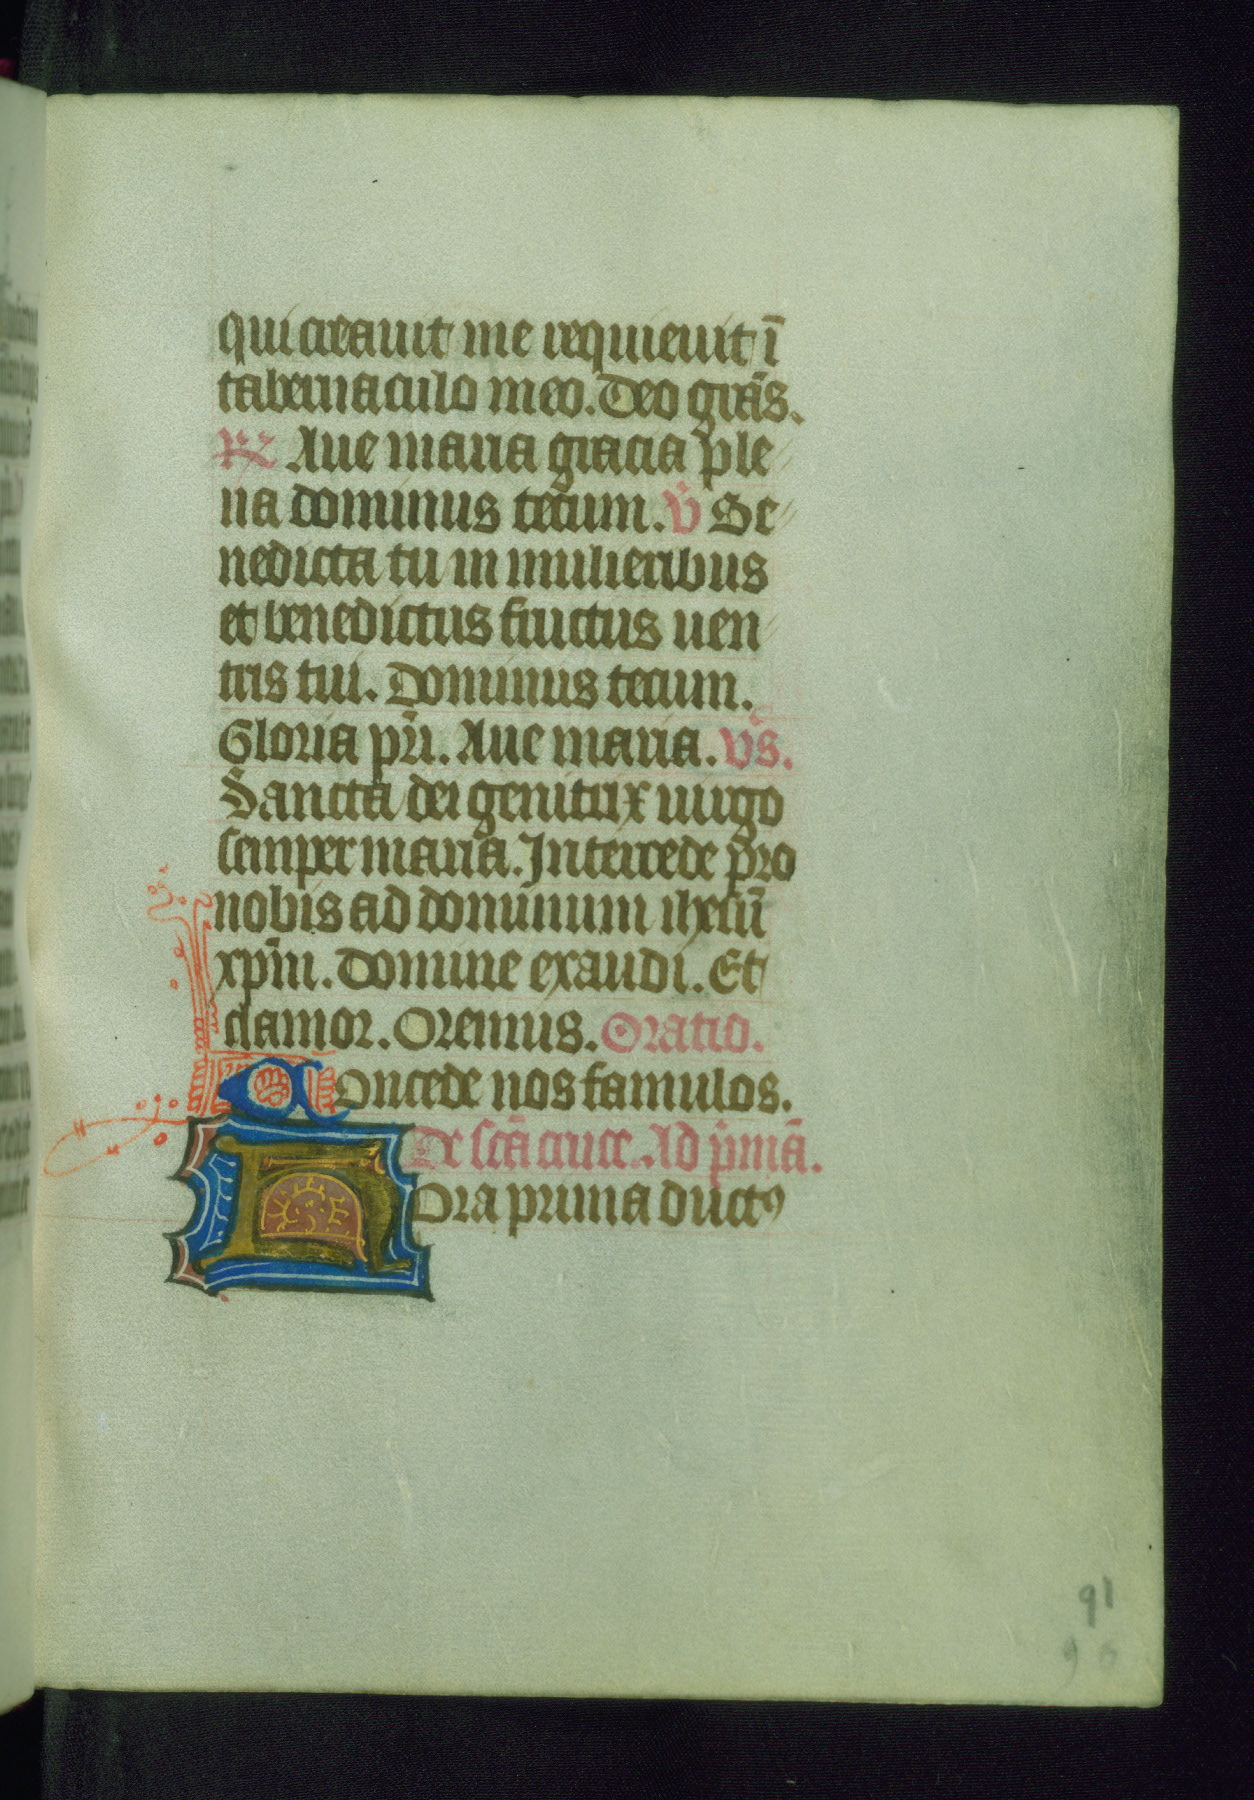 qui creauit me requieuit ī
tabernaculo meo. Deo grās.
℟ Aue maria gracia ple
na dominus tecum. ℣ Be
nedicta tu in mulieribus
et benedictus fructus uen
tris tui. Dominus tecum.
Gloria pr̄i. Aue maria. Vs̄.
Sancta dei genitrix uirgo
semper maria. Intercede pro
nobis ad dominum ihesū
xp̄m. Domine exaudi. Et
clamor. Oremus. Oratio.
Concede nos famulos.
De sc̄a cruce. Ad p̄mā.
Hora prima ductꝯ
91